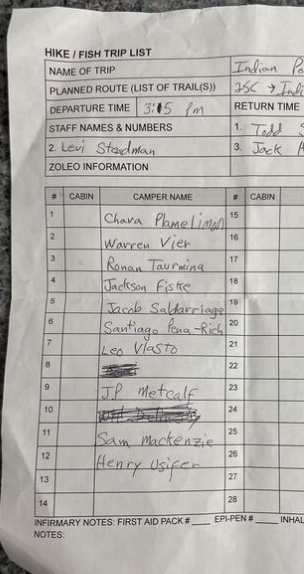 HIKE / FISH TRIP LIST
NAME OF TRIP Indian
PLANNED ROUTE (LIST OF TRAIL(S)) 25C → Indi
DEPARTURE TIME 3:15 pm RETURN TIME
STAFF NAMES & NUMBERS 1. Todd S
2. Levi Steadman 3. Jack
ZOLEO INFORMATION
# CABIN CAMPER NAME # CABIN
1 Chava Plamelimon 15
2 Warren Vier 16
3 Ronan Taurmina 17
4 Jackson Fiske 18
5 Jacob Saldarriaga 19
6 Santiago Pena-Rich 20
7 Leo Vlasto 21
8 22
9 J.P Metcalf 23
10 24
11 Sam Mackenzie 25
12 Henry Usifer 26
13 27
14 28
INFIRMARY NOTES: FIRST AID PACK # ____ EPI-PEN # ____ INHAL
NOTES: